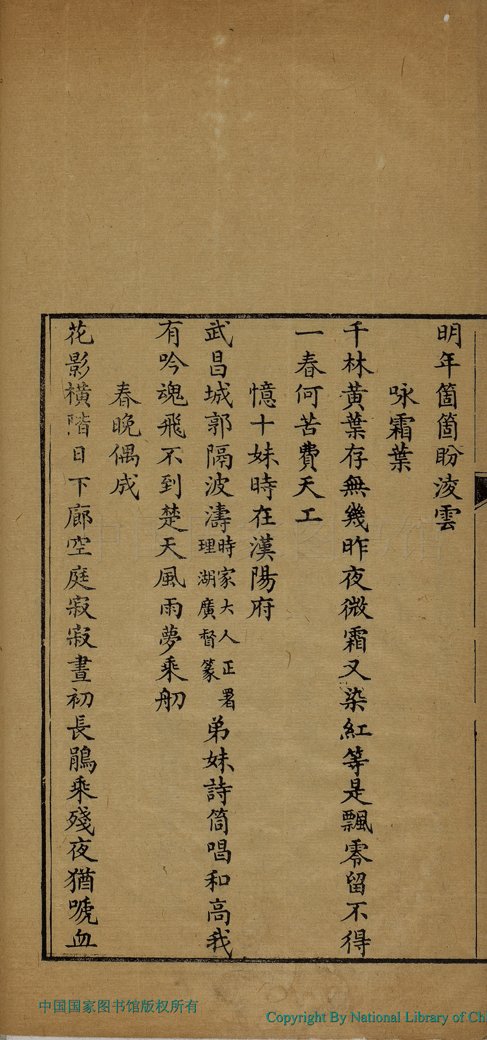 明年箇箇盼淩雲
咏霜葉
千林黃葉存無幾昨夜微霜又染紅等是飄零留不得
一春何苦費天工
憶十妹時在漢陽府
武昌城郭隔波濤時家大人正署理湖廣督篆弟妹詩筒唱和高我
有吟魂飛不到楚天風雨夢乘舠
春晚偶成
花影橫階日下廊空庭寂寂晝初長鵑乘殘夜猶嗁血
中国国家图书馆版权所有
Copyright By National Library of Ch